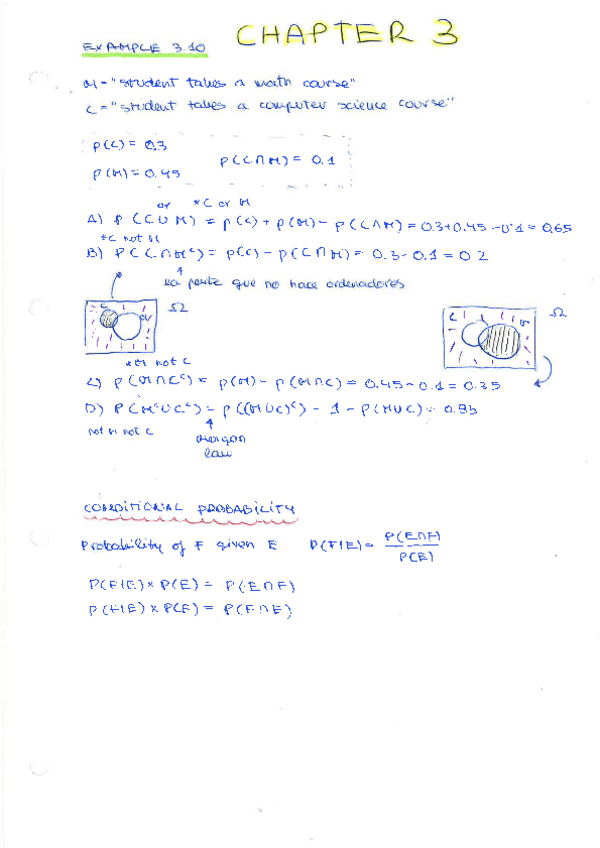 CHAPTER 3
EXAMPLE 3.10
M = "student takes a math course"
C = "student takes a computer science course"
P(C) = 0.3
P(M) = 0.45
P(C∩M) = 0.1
or *C or M
A) P(C∪M) = P(C) + P(M) - P(C∩M) = 0.3+0.45-0'1 = 0.65
*C not M
B) P(C∩Mᶜ) = P(C) - P(C∩M) = 0.3-0.1 = 0.2
la parte que no hace ordenadores
C M Ω
C M Ω
*M not C
C) P(M∩Cᶜ) = P(M) - P(M∩C) = 0.45-0.1 = 0.35
D) P(Mᶜ∪Cᶜ) = P((M∪C)ᶜ) = 1 - P(M∪C) = 0.35
not M not C
Morgan
law
CONDITIONAL PROBABILITY
Probability of F given E P(F|E) = P(E∩F)
P(E)
P(F|E) × P(E) = P(E∩F)
P(F|E) × P(F) = P(F∩E)